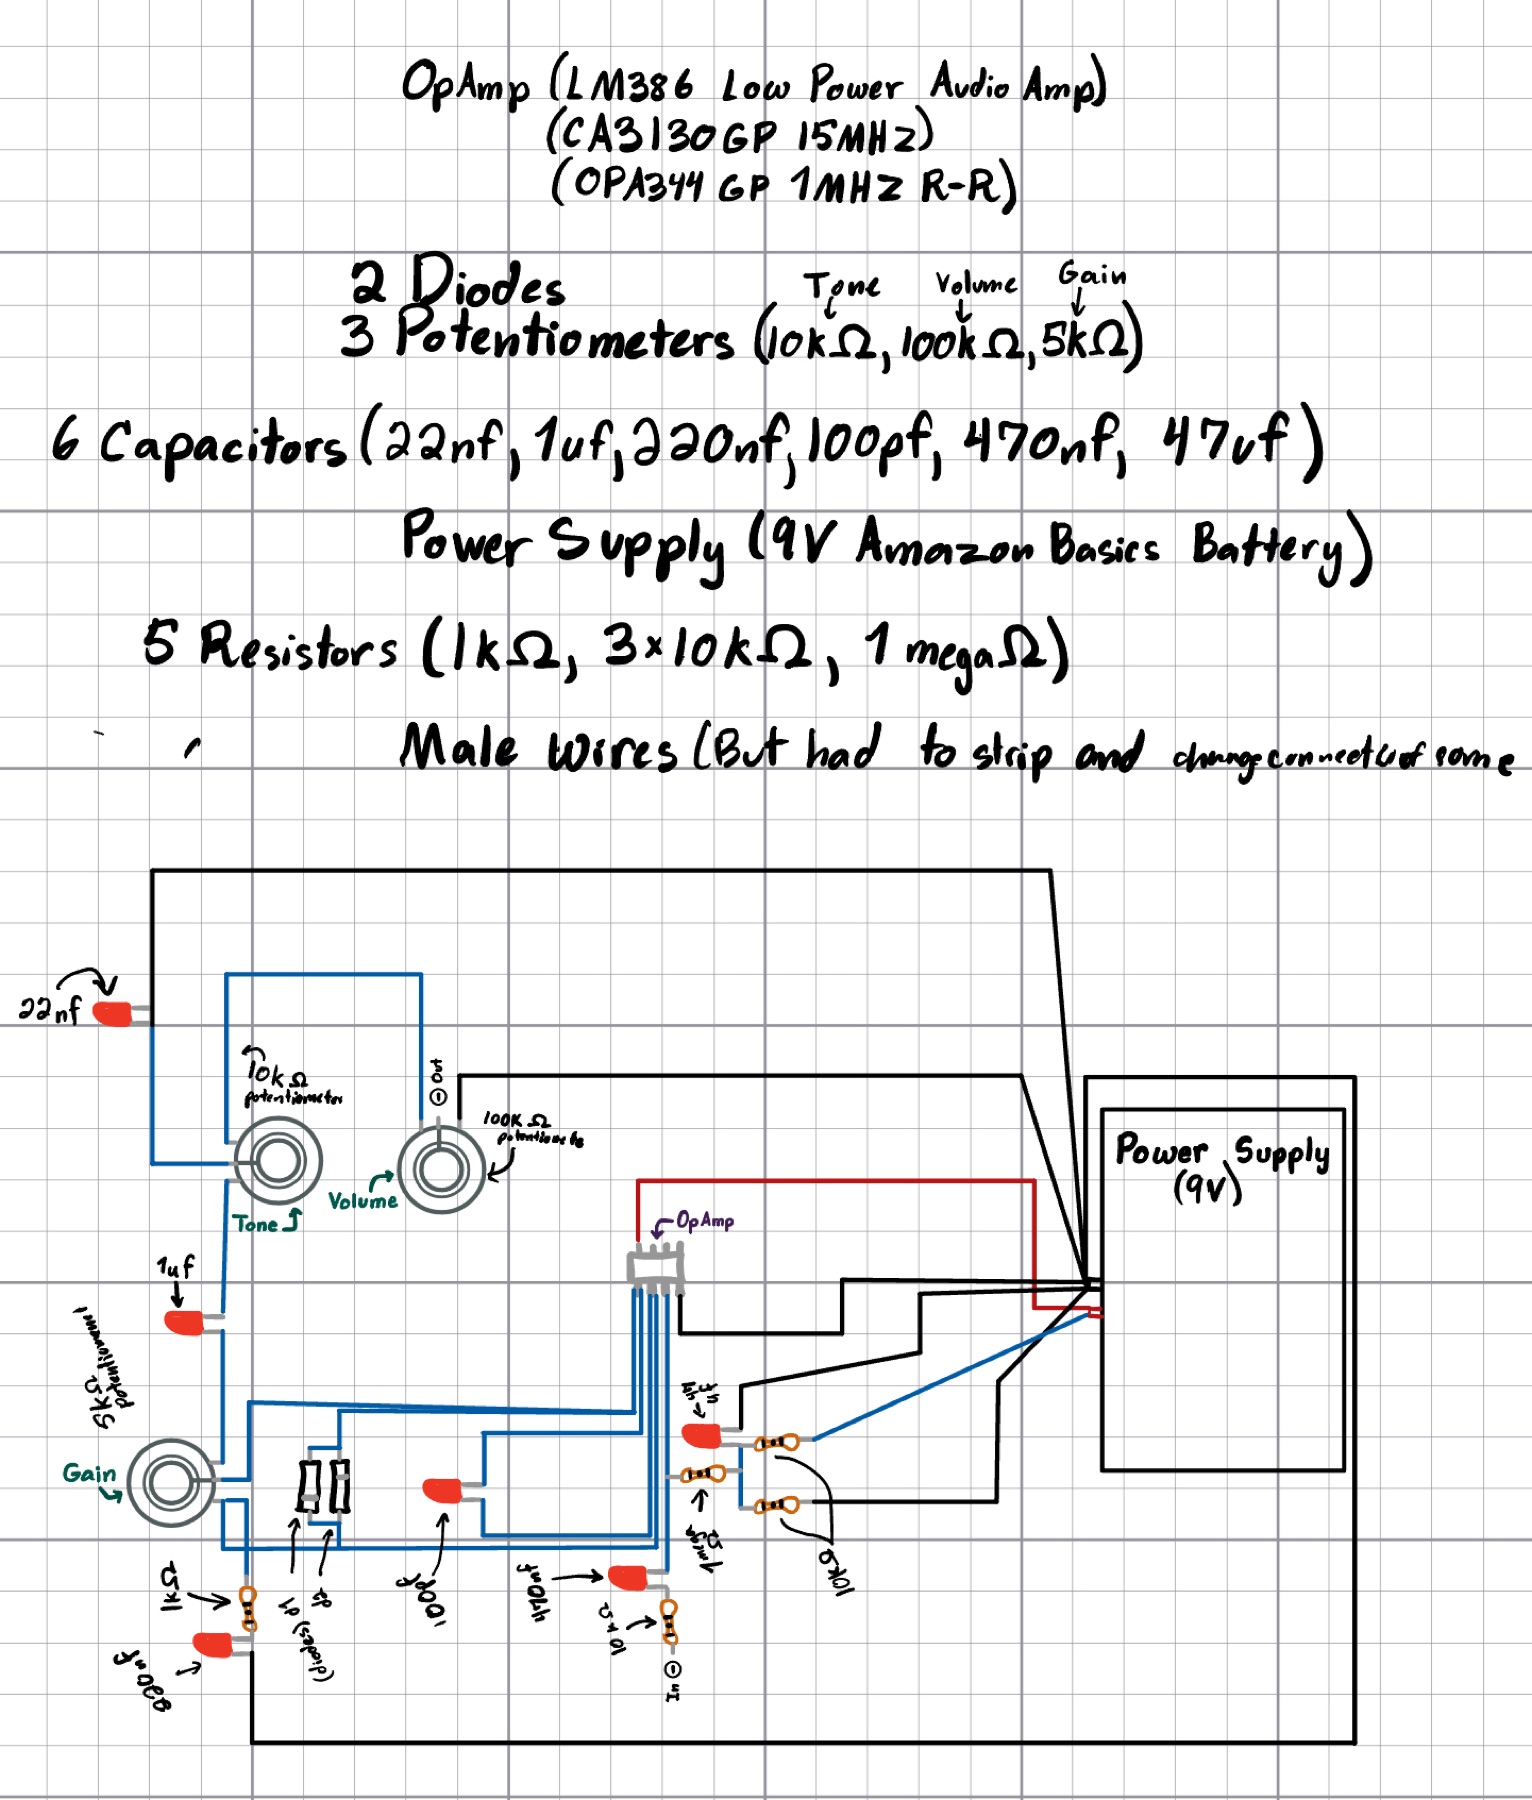 OpAmp (LM386 Low Power Audio Amp)
(CA3130 GP 15MHz)
(OPA344 GP 1MHz R-R)
2 Diodes
Tone Volume Gain
3 Potentiometers (10kΩ, 100kΩ, 5kΩ)
6 Capacitors (22nf, 1uf, 220nf, 100pf, 470nf, 47uf)
Power Supply (9V Amazon Basics Battery)
5 Resistors (1kΩ, 3×10kΩ, 1 megaΩ)
Male wires (But had to strip and change connect of some
22nf
10kΩ
potentiometer
Out
100KΩ
Volume
Tone
OpAmp
Power Supply
(9V)
1uf
5kΩ
Gain
47
uf
1mega
Ω
10kΩ
1kΩ
220nf
d1
d2
(diodes)
100pf
470nf
10kΩ
In